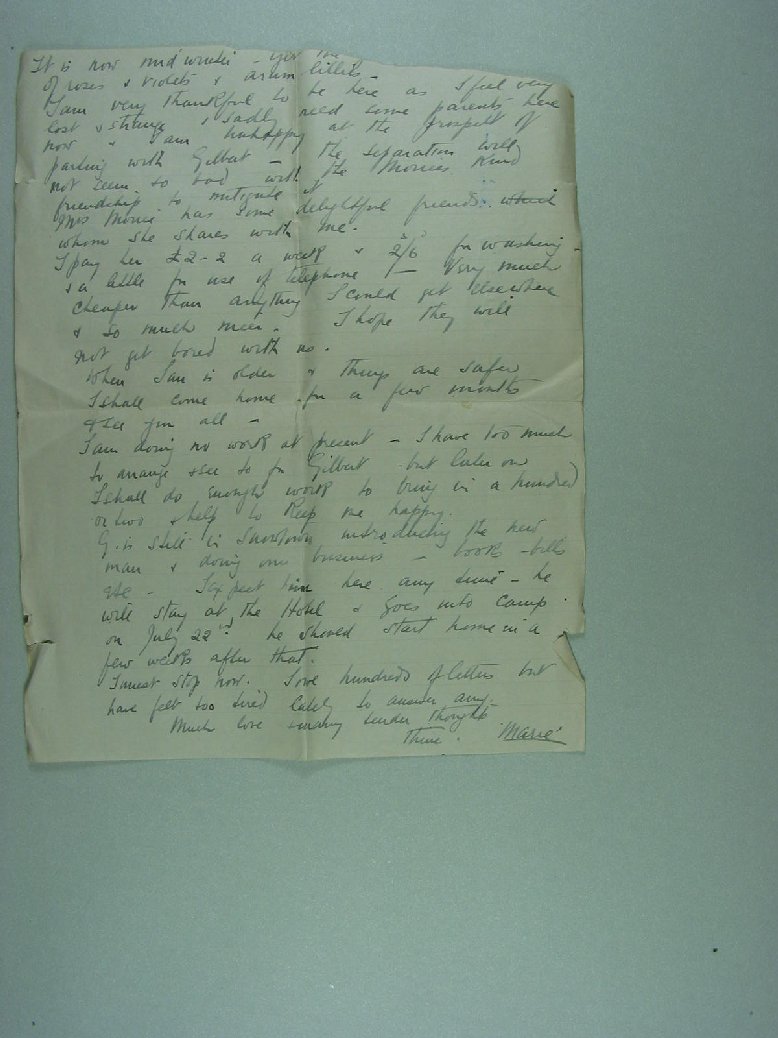 It is now mid winter - yet the
of roses & violets & arum lillies -
I am very thankful to be here as I feel very
lost & strange & sadly need some parents here
now & I am unhappy at the prospect of
parting with Gilbert - the separation will
not seem so bad with the Morices kind
friendship to mitigate it
Mrs Morice has some delightful friends which
whom she shares with me.
I pay her £2-2 a week & 2/6 for washing -
& a little for use of telephone - Very much
cheaper than anything I could get elsewhere
& so much nicer. I hope they will
not get bored with us.
When Ian is older & things are safer
I shall come home for a few months
& see you all -
I am doing no work at present - I have too much
to arrange & see to for Gilbert but later on
I shall do enough work to bring in a hundred
or two & help to keep me happy.
G. is still in Snowtown introducing the new
man & doing our business - books - bills
etc - I expect him here any time - he
will stay at the Hotel & goes into camp
on July 22nd he should start home in a
few weeks after that.
I must stop now. I owe hundreds of letters but
have felt too tired lately to answer any -
Much love & many tender thoughts
Thine. "Marie"